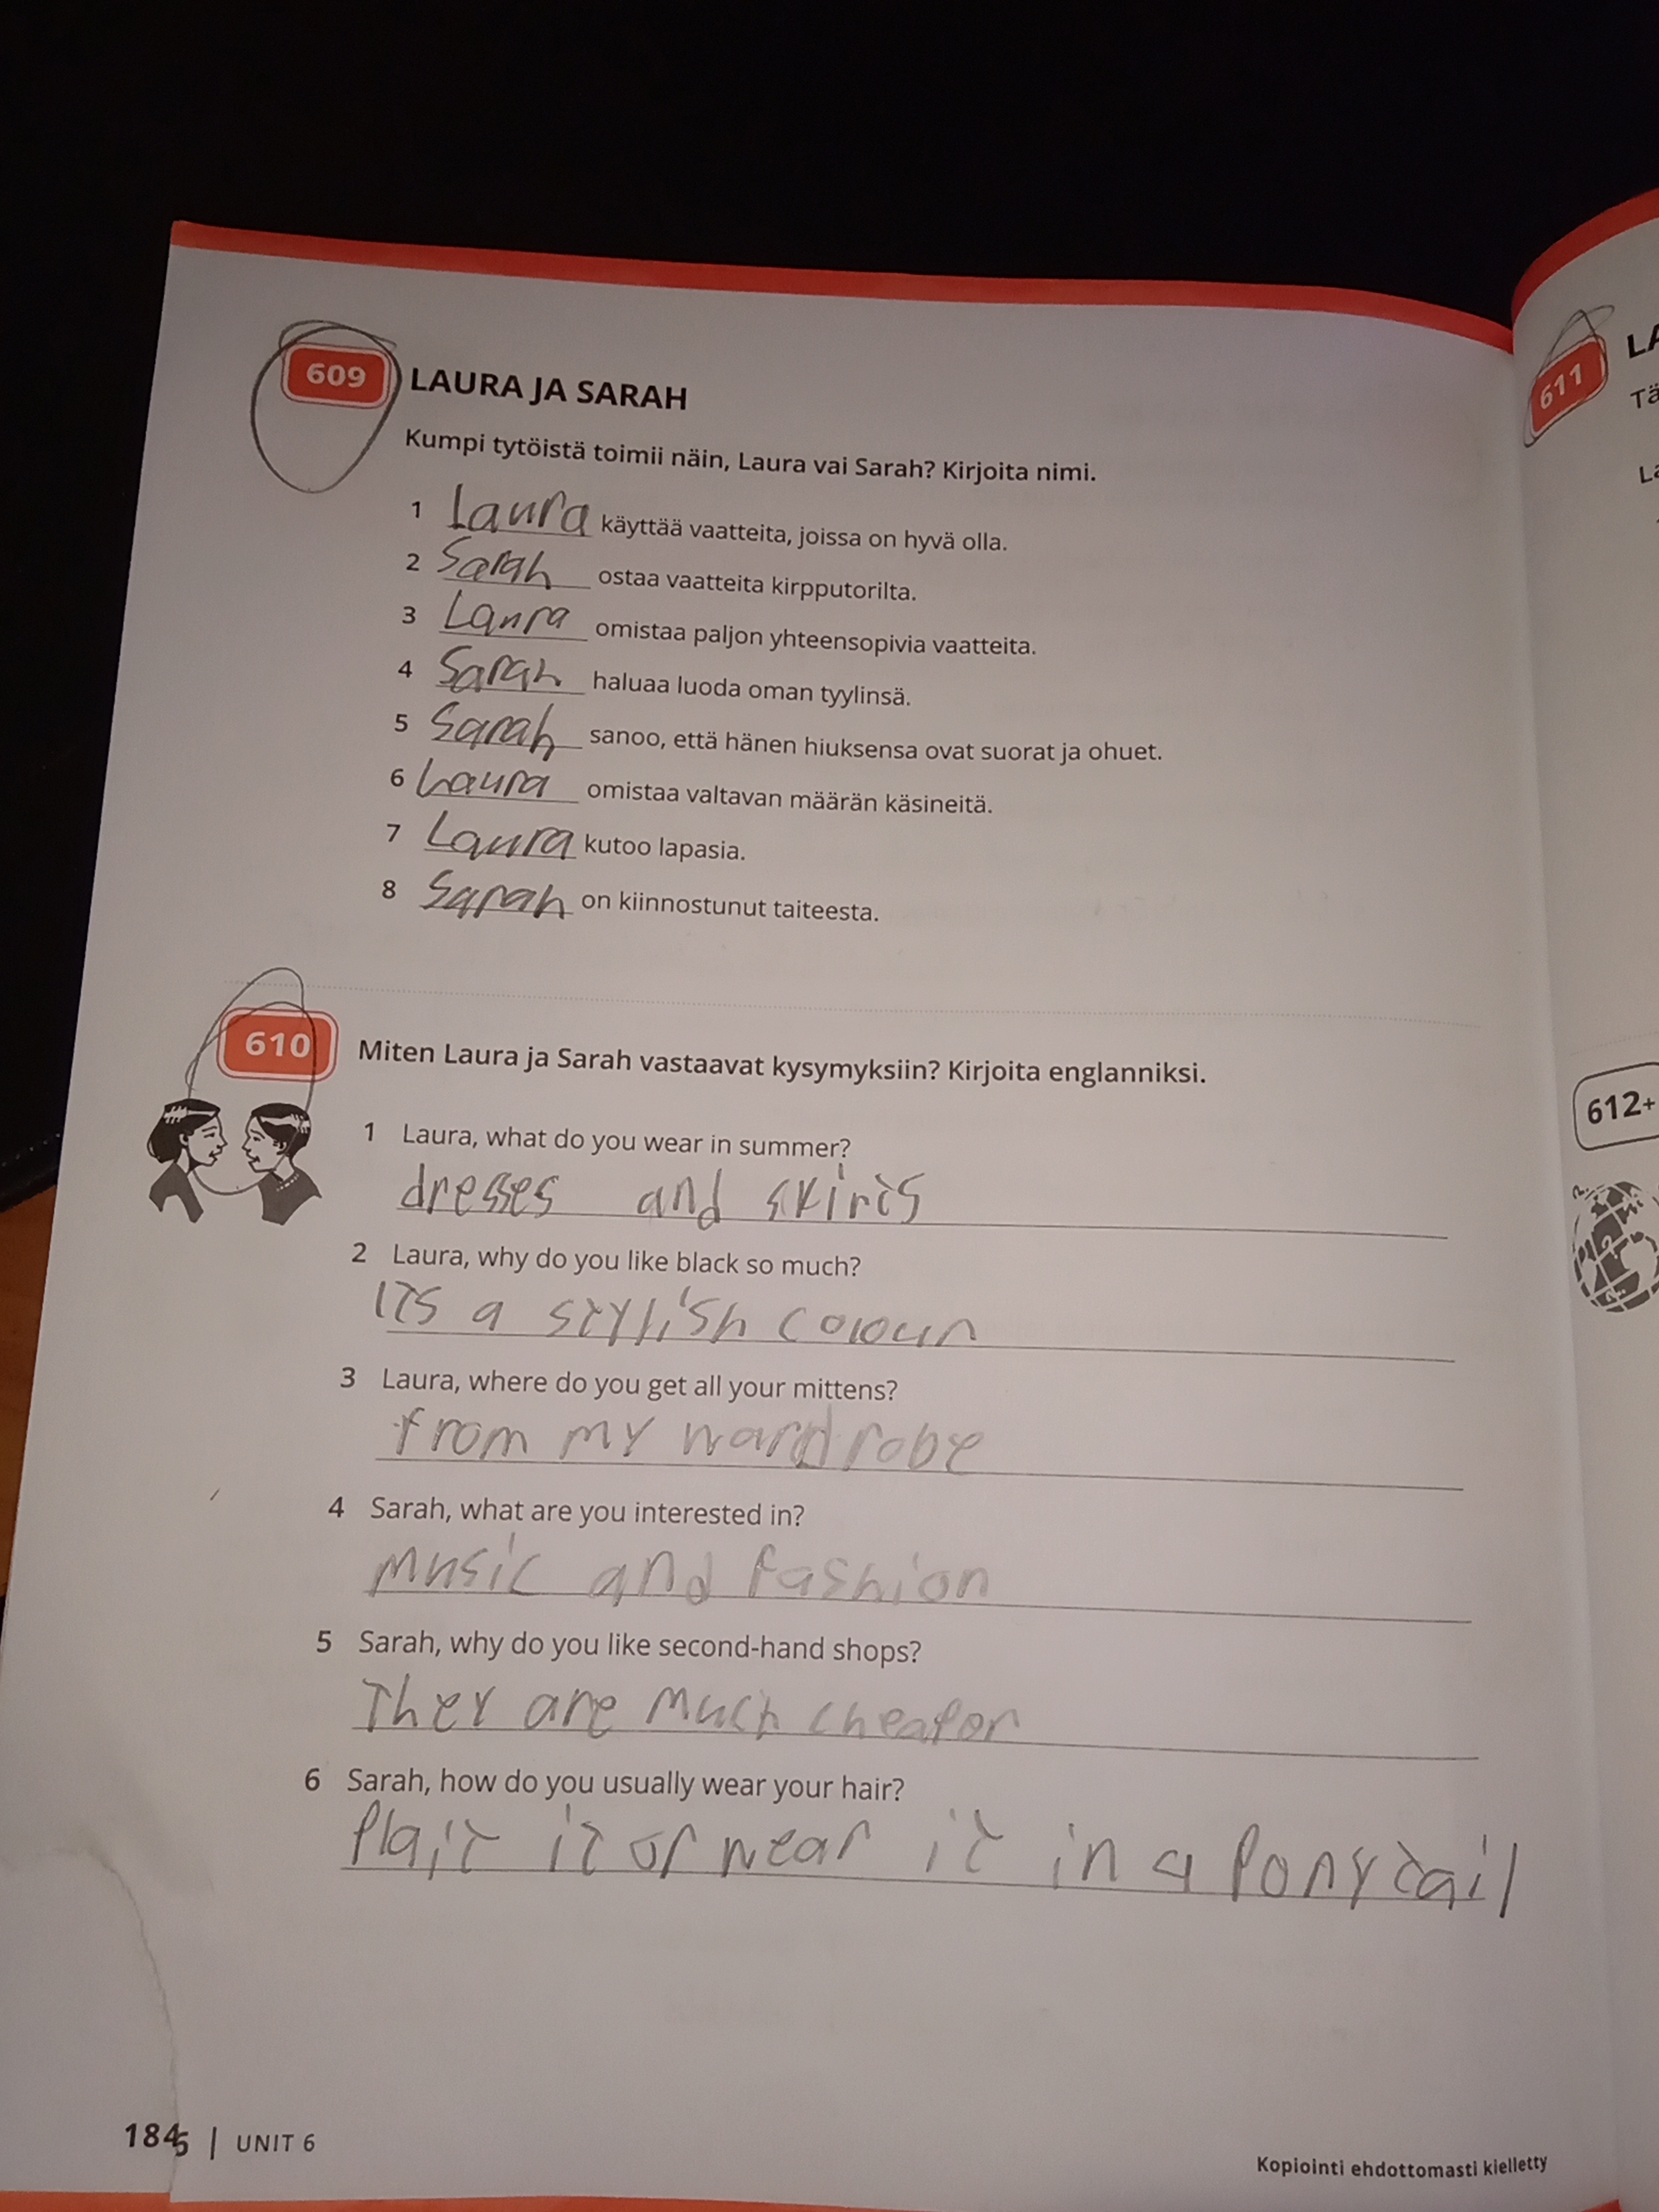 609 LAURA JA SARAH
Kumpi tytöistä toimii näin, Laura vai Sarah? Kirjoita nimi.
1 Laura käyttää vaatteita, joissa on hyvä olla.
2 Sarah ostaa vaatteita kirpputorilta.
3 Laura omistaa paljon yhteensopivia vaatteita.
4 Sarah haluaa luoda oman tyylinsä.
5 Sarah sanoo, että hänen hiuksensa ovat suorat ja ohuet.
6 Laura omistaa valtavan määrän käsineitä.
7 Laura kutoo lapasia.
8 Sarah on kiinnostunut taiteesta.
610 Miten Laura ja Sarah vastaavat kysymyksiin? Kirjoita englanniksi.
1 Laura, what do you wear in summer?
dresses and skirts
2 Laura, why do you like black so much?
its a stylish colour
3 Laura, where do you get all your mittens?
from my wardrobe
4 Sarah, what are you interested in?
music and fashion
5 Sarah, why do you like second-hand shops?
They are much cheapor
6 Sarah, how do you usually wear your hair?
Plait it or wear it in a Ponytail
184 | UNIT 6
Kopiointi ehdottomasti kielletty
611
612+